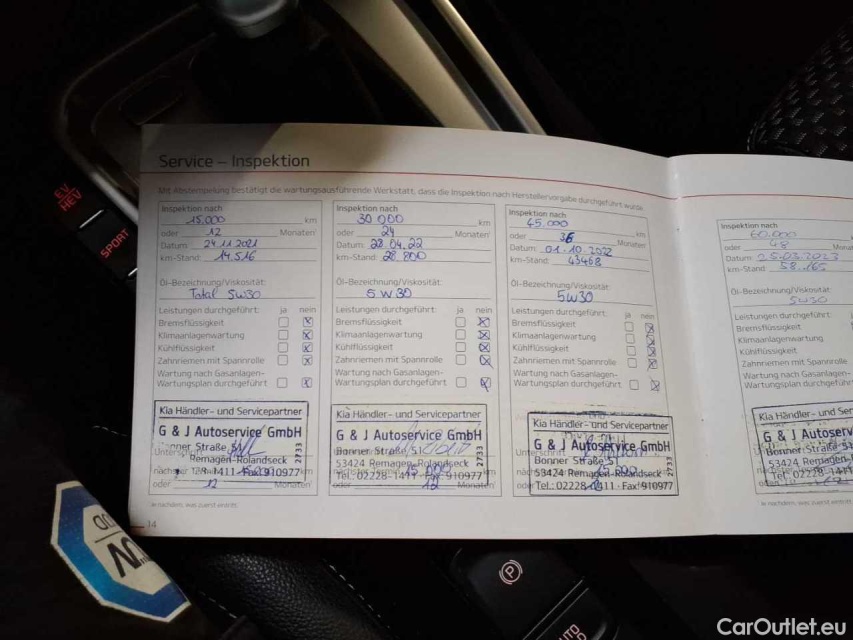 Service – Inspektion
Mit Abstempelung bestätigt die wartungsausführende Werkstatt, dass die Inspektion nach Herstellervorgabe durchgeführt wurde.
Inspektion nach
15.000 km
oder 12 Monaten*
Datum: 24.11.2021
km-Stand: 14.516
Öl-Bezeichnung/Viskosität:
Total 5W30
Leistungen durchgeführt: ja nein
Bremsflüssigkeit
Klimaanlagenwartung
Kühlflüssigkeit
Zahnriemen mit Spannrolle
Wartung nach Gasanlagen-
Wartungsplan durchgeführt
Kia Händler- und Servicepartner
G & J Autoservice GmbH
Bonner Straße 51
Remagen-Rolandseck
1411 · Fax: 910977
2733
oder 12 Monaten*
*Je nachdem, was zuerst eintritt.
14
Inspektion nach
30 000 km
oder 24 Monaten*
Datum: 28.04.22
km-Stand: 28.800
Öl-Bezeichnung/Viskosität:
5W30
Leistungen durchgeführt: ja nein
Bremsflüssigkeit
Klimaanlagenwartung
Kühlflüssigkeit
Zahnriemen mit Spannrolle
Wartung nach Gasanlagen-
Wartungsplan durchgeführt
Kia Händler- und Servicepartner
G & J Autoservice GmbH
Bonner Straße 51
53424 Remagen-Rolandseck
Tel.: 02228-1411 · Fax: 910977
2733
oder 12 Monaten*
*Je nachdem, was zuerst eintritt.
Inspektion nach
45.000 km
oder 36 Monaten*
Datum: 01.10.2022
km-Stand: 43468
Öl-Bezeichnung/Viskosität:
5W30
Leistungen durchgeführt: ja nein
Bremsflüssigkeit
Klimaanlagenwartung
Kühlflüssigkeit
Zahnriemen mit Spannrolle
Wartung nach Gasanlagen-
Wartungsplan durchgeführt
Kia Händler- und Servicepartner
G & J Autoservice GmbH
Bonner Straße 51
53424 Remagen-Rolandseck
Tel.: 02228-1411 · Fax: 910977
2733
*Je nachdem, was zuerst eintritt.
Inspektion nach
60.000
oder 48
Datum: 25.03.2023
km-Stand: 58.165
Öl-Bezeichnung/Viskosität:
5W30
Leistungen durchgeführt:
Bremsflüssigkeit
Klimaanlagenwartung
Kühlflüssigkeit
Zahnriemen mit Spannrolle
Wartung nach Gasanlagen-
Wartungsplan durchgeführt
Kia Händler- und Ser
G & J Autoserv
Bonner Straße 51
53424 Remagen
Tel.: 02228-141
*Je nachdem, was zuerst eintritt.
EV
HEV
SPORT
P
AUTO
CarOutlet.eu